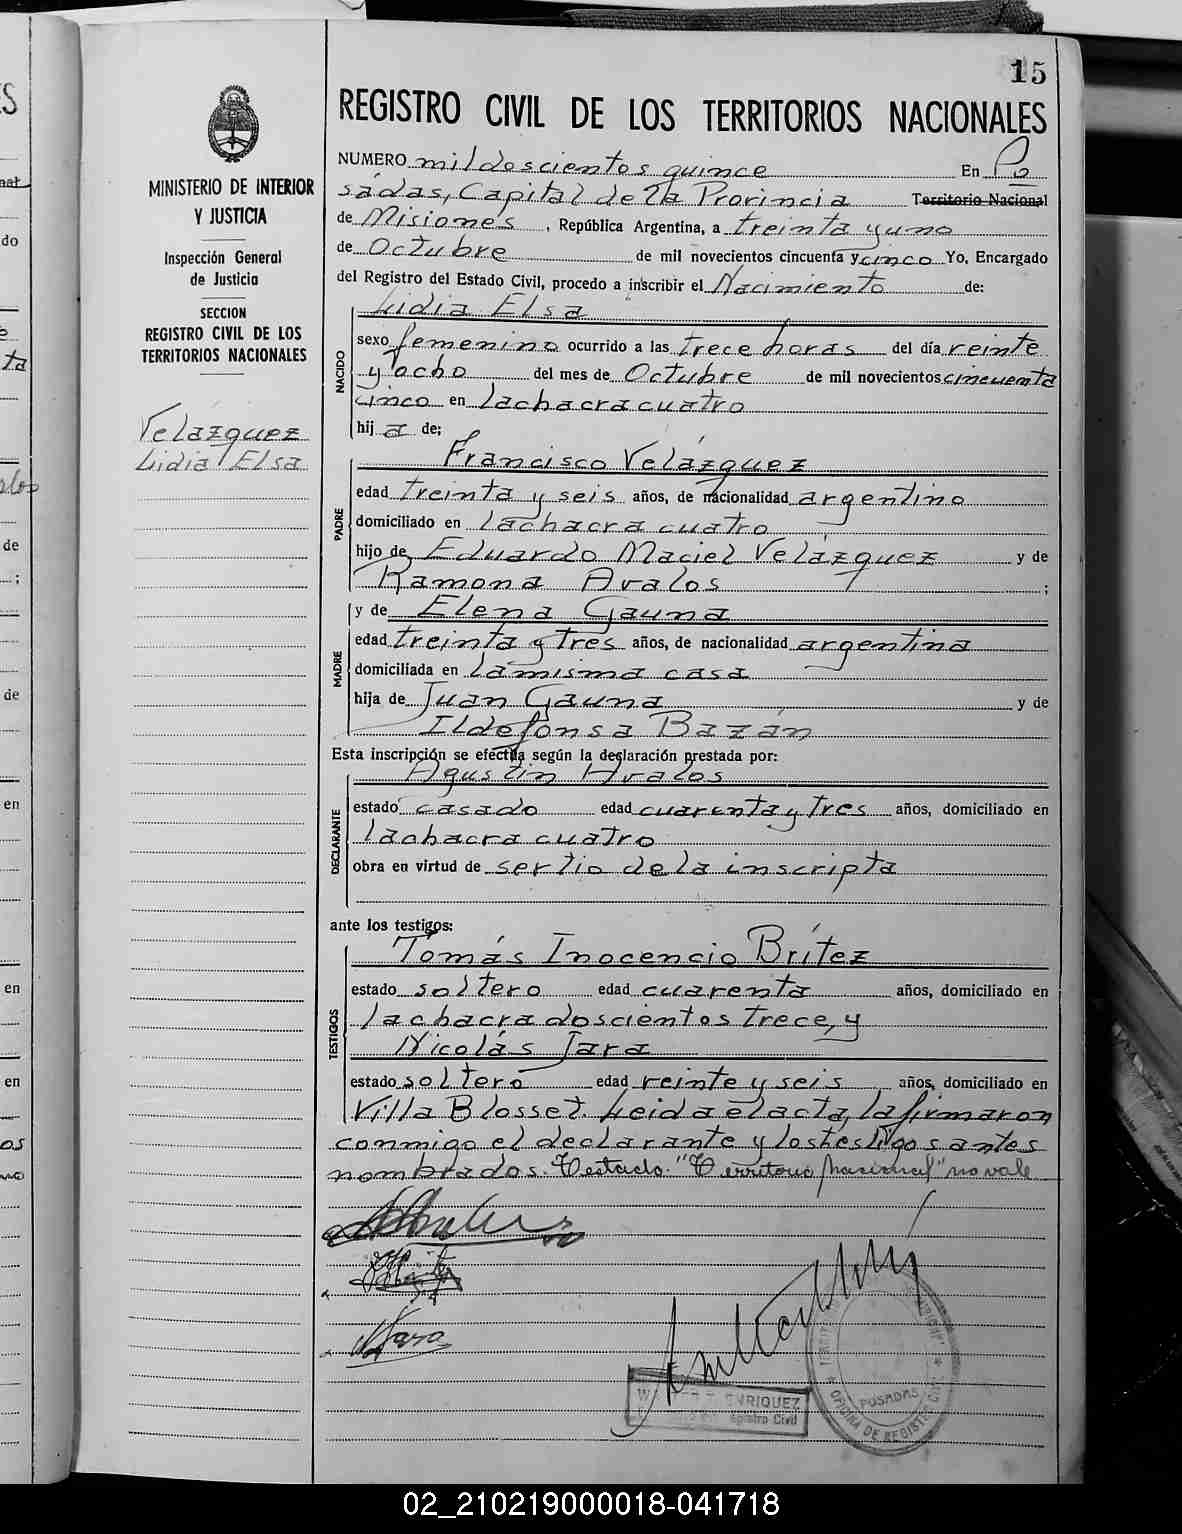 15
REGISTRO CIVIL DE LOS TERRITORIOS NACIONALES
MINISTERIO DE INTERIOR
Y JUSTICIA
Inspección General
de Justicia
SECCION
REGISTRO CIVIL DE LOS
TERRITORIOS NACIONALES
Velázquez
Lidia Elsa
NUMERO mil doscientos quince En Po
sádas, Capital de la Provincia Territorio Nacional
de Misiones, República Argentina, a treinta y uno
de Octubre de mil novecientos cincuenta y cinco Yo, Encargado
del Registro del Estado Civil, procedo a inscribir el Nacimiento de:
NACIDO
Lidia Elsa
sexo femenino ocurrido a las trece horas del día veinte
y ocho del mes de Octubre de mil novecientos cincuenta
cinco en la chacra cuatro
hij a de;
PADRE
Francisco Velázquez
edad treinta y seis años, de nacionalidad argentino
domiciliado en la chacra cuatro
hijo de Eduardo Maciel Velázquez y de
Ramona Avalos ;
MADRE
y de Elena Gauna
edad treinta y tres años, de nacionalidad argentina
domiciliada en la misma casa
hija de Juan Gauna y de
Ildefonsa Bazán
Esta inscripción se efectúa según la declaración prestada por:
DECLARANTE
Agustín Avalos
estado casado edad cuarenta y tres años, domiciliado en
la chacra cuatro
obra en virtud de ser tio de la inscripta
ante los testigos:
TESTIGOS
Tomás Inocencio Brítez
estado soltero edad cuarenta años, domiciliado en
la chacra doscientos trece, y
Nicolás Jara
estado soltero edad veinte y seis años, domiciliado en
Villa Blosset. Leida el acta, la firmaron
conmigo el declarante y los testigos antes
nombrados. Testado: "Territorio Nacional" no vale
NJara
ENRIQUEZ
Registro Civil
OFICINA DE REGISTRO CIVIL
POSADAS
02_210219000018-041718